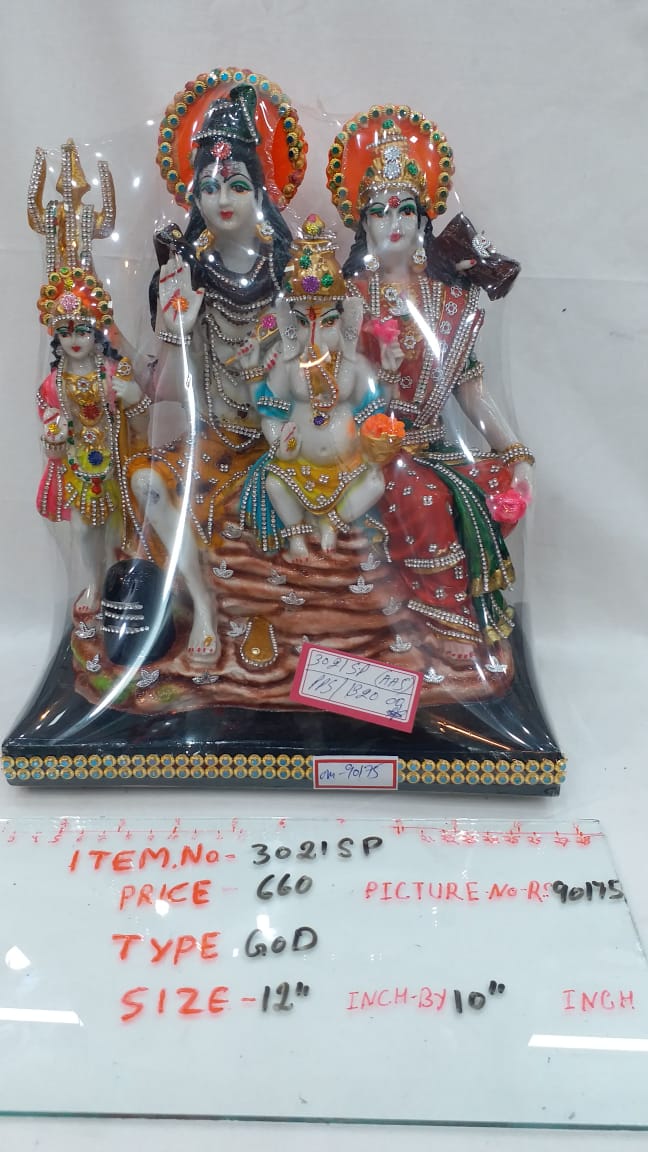 3021SP (AAS)
PPS/B20
om-90175
ITEM.No- 3021SP
PRICE - 660 PICTURE-No-Rs 90175
TYPE GOD
SIZE-12" INCH-BY 10" INCH